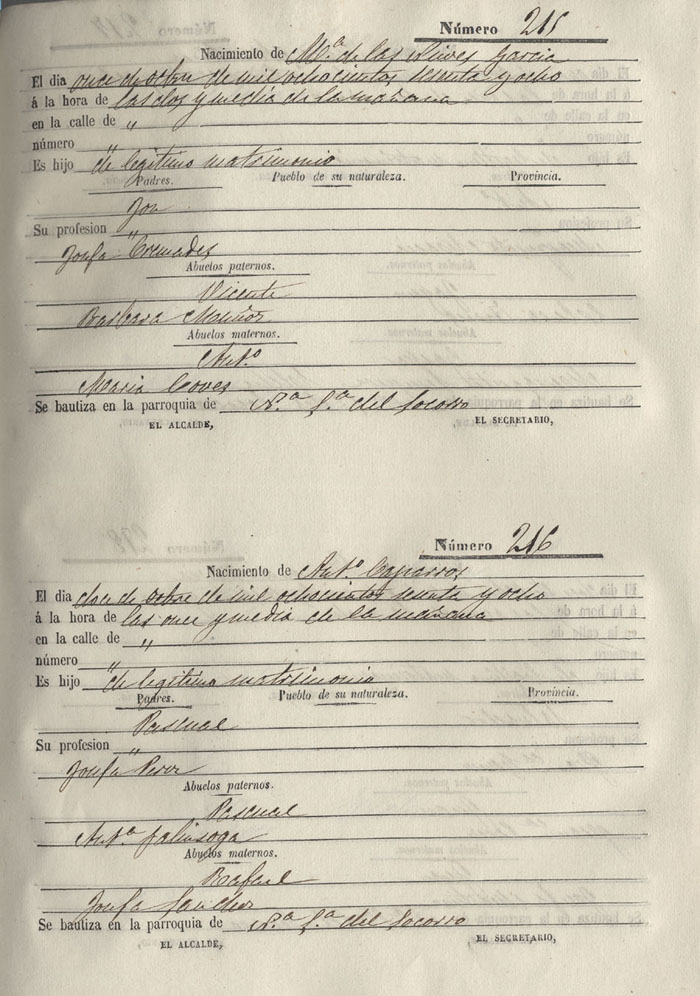 Número 215
Nacimiento de Mª de las Nieves Garcia
El dia once de octbre de mil ochocientos sesenta y ocho
á la hora de las dos y media de la mañana
en la calle de "
número "
Es hijo de legitimo matrimonio
Padres. Pueblo de su naturaleza. Provincia.
José
Su profesion "
Josefa Cremades
Abuelos paternos.
Vicente
Barbara Muñoz
Abuelos maternos.
Antº
Maria Coves
Se bautiza en la parroquia de Nª Sª del Socorro
EL ALCALDE, EL SECRETARIO,
Número 216
Nacimiento de Antº Caparros
El dia doce de octbre de mil ochocientos sesenta y ocho
á la hora de las once y media de la mañana
en la calle de "
número "
Es hijo de legitimo matrimonio
Padres. Pueblo de su naturaleza. Provincia.
Pascual
Su profesion "
Josefa Perez
Abuelos paternos.
Pascual
Antª Galiasoga
Abuelos maternos.
Rafael
Josefa Sanchez
Se bautiza en la parroquia de Nª Sª del Socorro
EL ALCALDE, EL SECRETARIO,